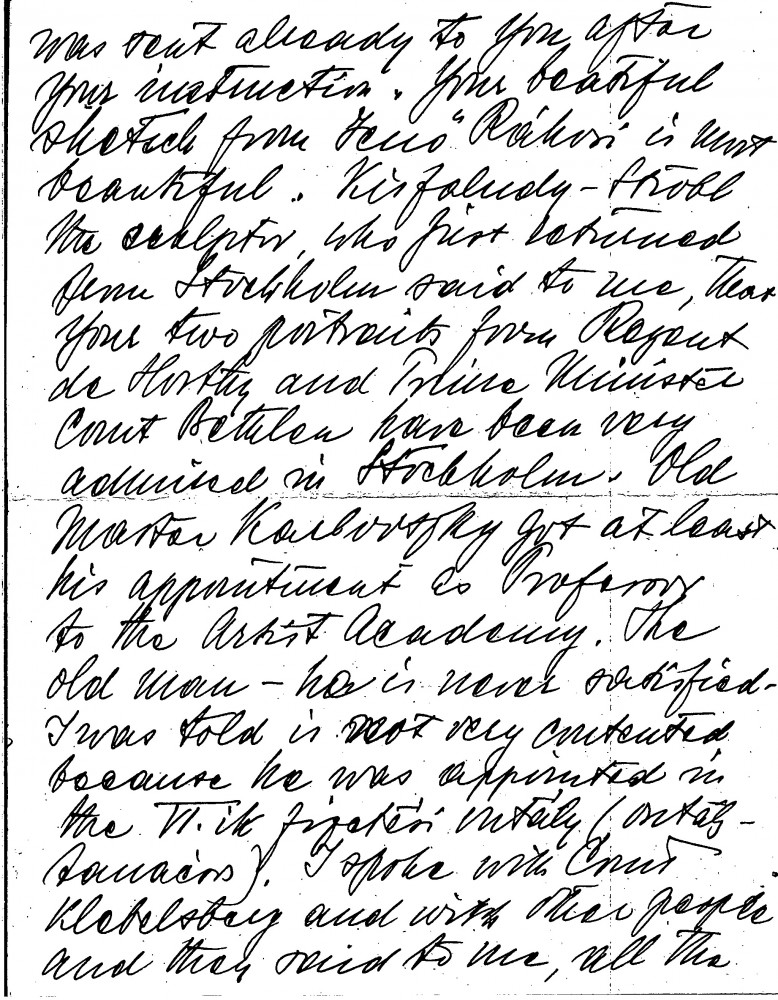 was sent already to you after
your instruction. Your beatiful
sketsch from Jenő Rákosi is most
beautiful. Kisfaludy-Strobl
the sculptor, who just returned
from Stockholm said to me, that
your two portraits from Regent
de Horthy and Prime Minister
Count Bethlen have been very
admired in Stockholm. Old
Master Karlovszky got at least
his appointment as Professor
to the Artist Academy. The
old man - he is never satisfied -
I was told is not very contented
because he was appointed in
the VI. ik fizetési osztály (osztály-
tanácsos). I spoke with Count
Klebelsberg and with other people
and they said to me, all the